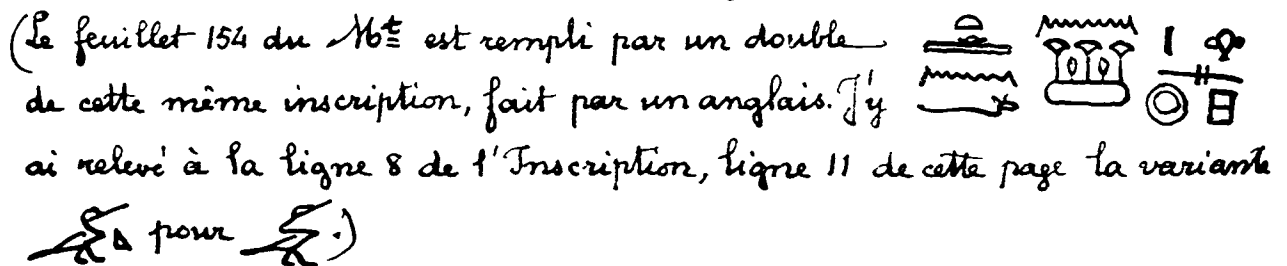 (Le feuillet 154 du Mt est rempli par un double
de cette même inscription, fait par un anglais. J'y
ai relevé à la ligne 8 de l'Inscription, ligne 11 de cette page la variante
pour .)